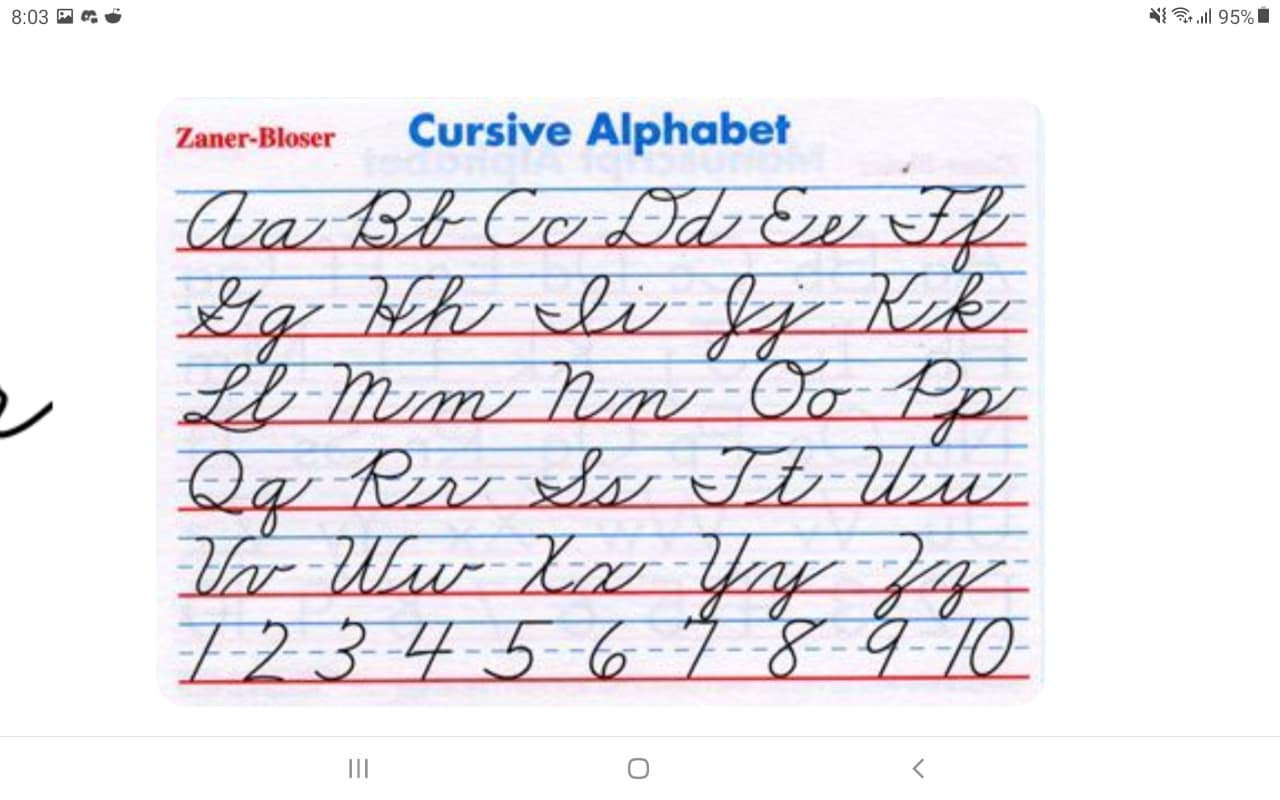 8:03 95%
Zaner-Bloser Cursive Alphabet
Aa Bb Cc Dd Ee Ff
Gg Hh Ii Jj Kk
Ll Mm Nn Oo Pp
Qq Rr Ss Tt Uu
Vv Ww Xx Yy Zz
1 2 3 4 5 6 7 8 9 10